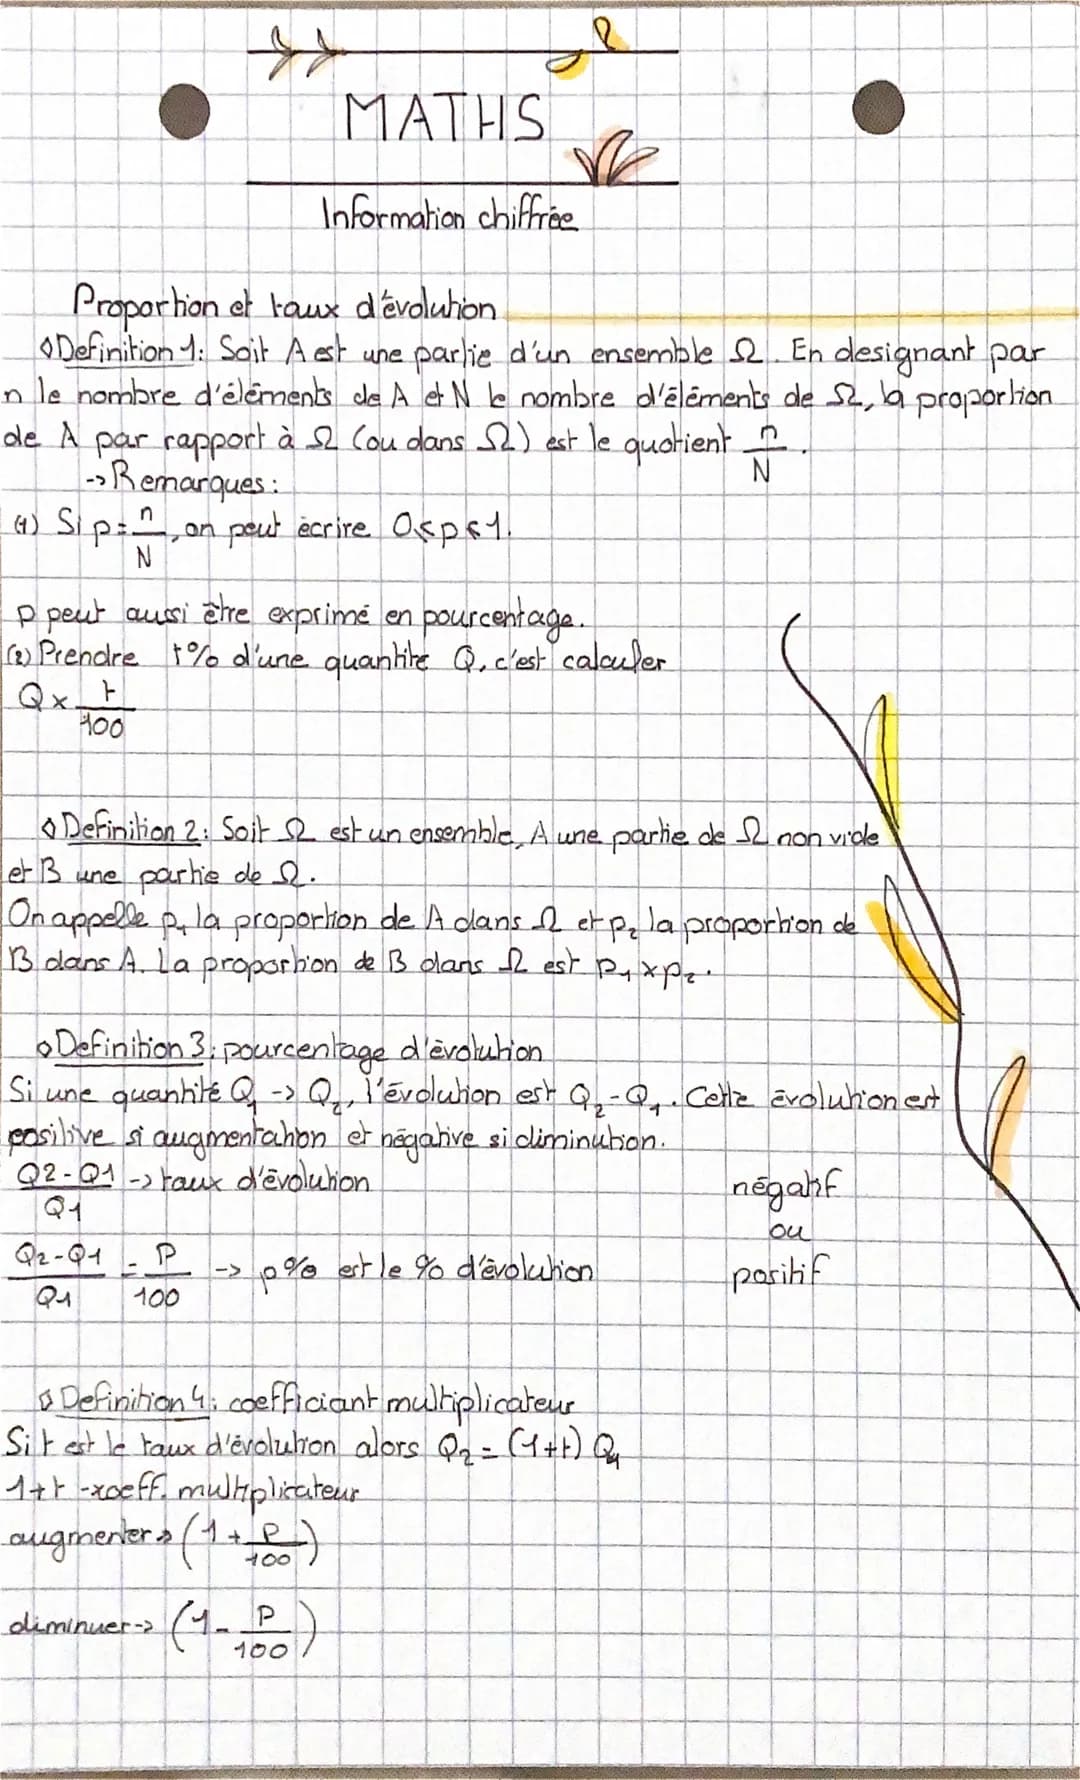 MATHS
Information chiffrée
Proportion et taux d'évolution
◊Definition 1: Soit A est une partie d'un ensemble Ω. En designant par
n le nombre d'éléments de A et N le nombre d'éléments de Ω, la proportion
de A par rapport à Ω (ou dans Ω) est le quotient n/N.
-> Remarques:
(1) Si p = n/N, on peut écrire 0≤p≤1.
p peut aussi être exprimé en pourcentage.
(2) Prendre t% d'une quantité Q, c'est calculer
Q × t/100
◊ Definition 2: Soit Ω est un ensemble, A une partie de Ω non vide
et B une partie de Ω.
On appelle p₁ la proportion de A dans Ω et p₂ la proportion de
B dans A. La proportion de B dans Ω est p₁ × p₂.
◊Definition 3: pourcentage d'évolution
Si une quantité Q₁ -> Q₂, l'évolution est Q₂-Q₁. Cette évolution est
positive si augmentation et négative si diminution.
(Q2-Q1)/Q1 -> taux d'évolution
négatif
ou
(Q2-Q1)/Q1 = P/100 -> p% est le % d'évolution
positif
◊ Definition 4: coefficiant multiplicateur
Si t est le taux d'évolution alors Q₂ = (1+t) Q₁
1+t ->coeff. multiplicateur
augmenter-> (1 + P/100)
diminuer-> (1 - P/100)